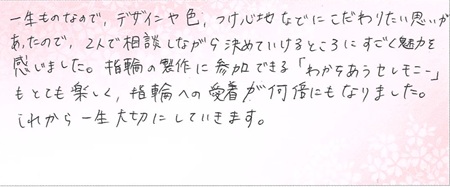 一生ものなので、デザインや色、つけ心地などにこだわりたい思いが
あったので、2人で相談しながら決めていけるところにすごく魅力を
感じました。指輪の製作に参加できる「わかちあうセレモニー」
もとても楽しく、指輪への愛着が何倍にもなりました。
これから一生大切にしていきます。